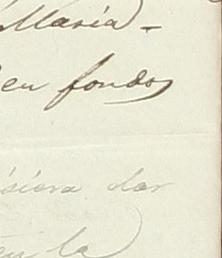 Maria-
en fondos
isiera dar
en la